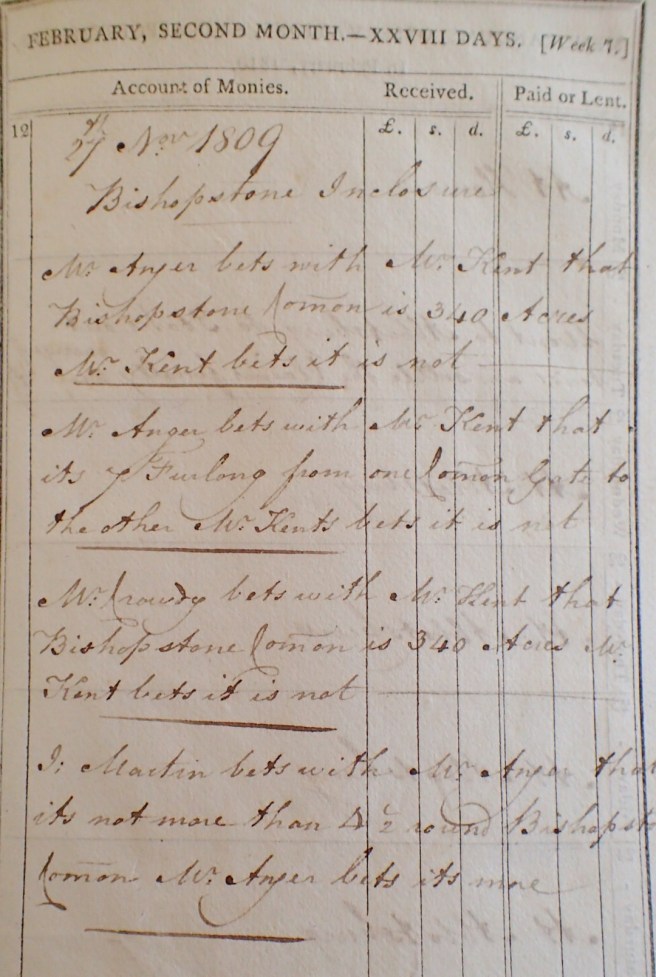 FEBRUARY, SECOND MONTH.—XXVIII DAYS. [Week 7.]
Account of Monies. Received. Paid or Lent.
12 £. s. d. £. s. d.
27 Nov 1809
Bishopstone Inclosure
Mr. Anger bets with Mr. Kent that
Bishopstone Com̅on is 340 Acres
Mr. Kent bets it is not
Mr. Anger bets with Mr. Kent that
its 7 Furlong from one Com̅on Gate to
the other Mr. Kents bets it is not
Mr. Crowdy bets with Mr. Kent that
Bishopstone Com̅on is 340 Acres Mr.
Kent bets it is not
J: Martin bets with Mr. Anger that
its not more than 4 ½ round Bishopsto
Com̅on Mr. Anger bets its more